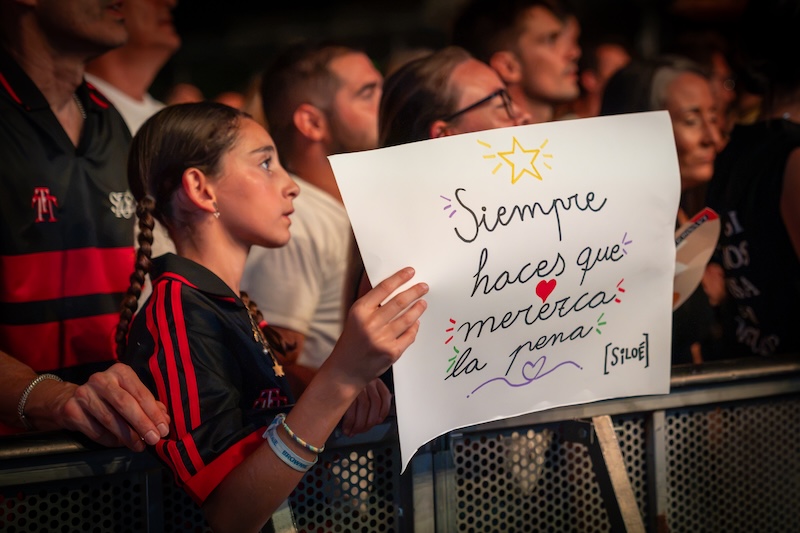 Siempre
haces que
merezca
la pena
[SiLOÉ]